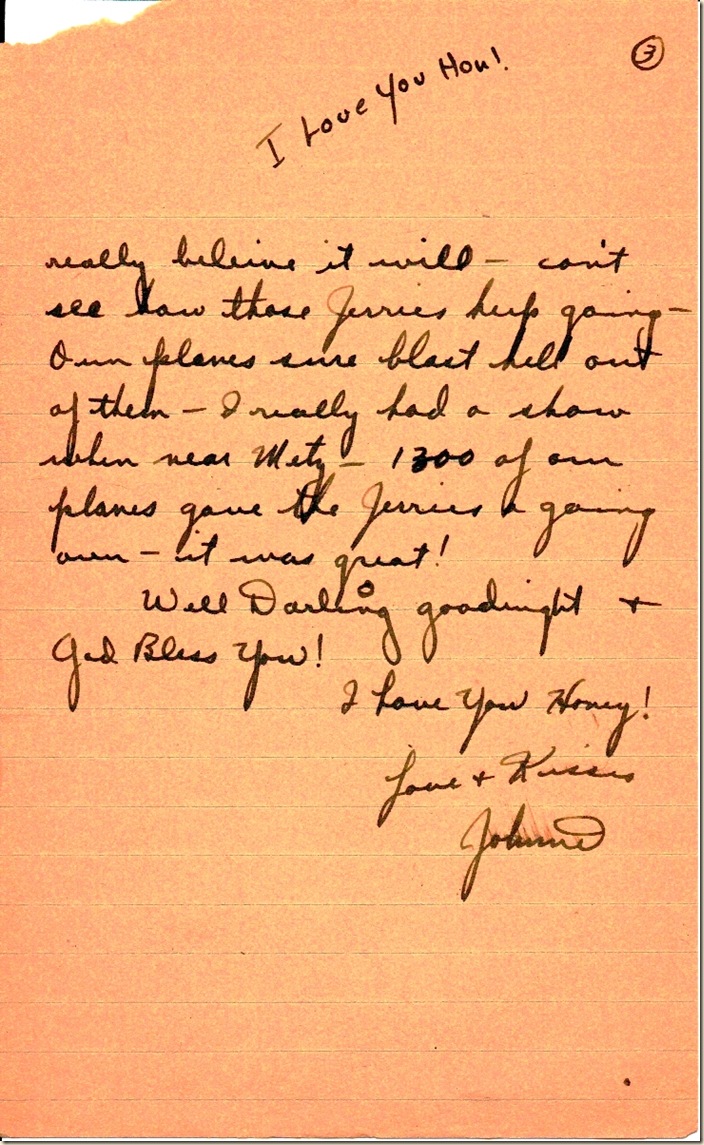 3
I Love You Hon!
really beleive it will - can't
see how those Jerries keep going -
Our planes sure blast hell out
of them - I really had a show
when near Metz - 1300 of our
planes gave the Jerries a going
over - it was great!
Well Darling goodnight +
God Bless You!
I Love You Honey!
Love + Kisses
Johnnie